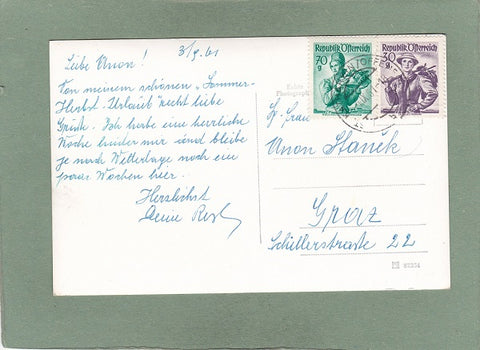 Liebe Unon! 3/9.61
Von meinem schönen, Sommer-
Herbst. Urlaub recht liebe
Grüße. Ich habe eine herrliche
Woche hinter mir und bleibe
je nach Wetterlage noch ein
paar Wochen hier.
Herzlichst
Deine
Republik Österreich
70
g
Republik Österreich
30
g
Echte
Photographie
Unon Stanek
Graz
Schillerstraße 22